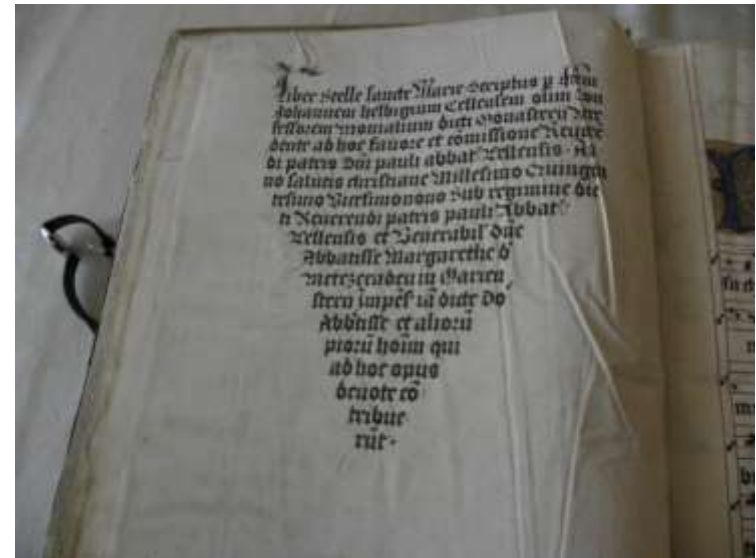 Liber Stelle sancte Marie Scriptus p
Johannem helbigium Cellensem olim Con
fessorem monialium dicti Monasterij
dente ad hoc fauore et cōmissione Reuere
di patris Dnī pauli abbat Cellensis. An
no salutis christiane Millesimo Quingen
tesimo Vicesimonono Sub regimine dic
ti Reuerendi patris pauli Abbat
Cellensis et Venerabil' dn̄e
Abbatisse Margarethe d'
in Marien
stern īmpēs iā dicte Do
Abbatisse et aliorū
piorū hoīm qui
ad hoc opus
deuote cō
tribue
rūt.
su